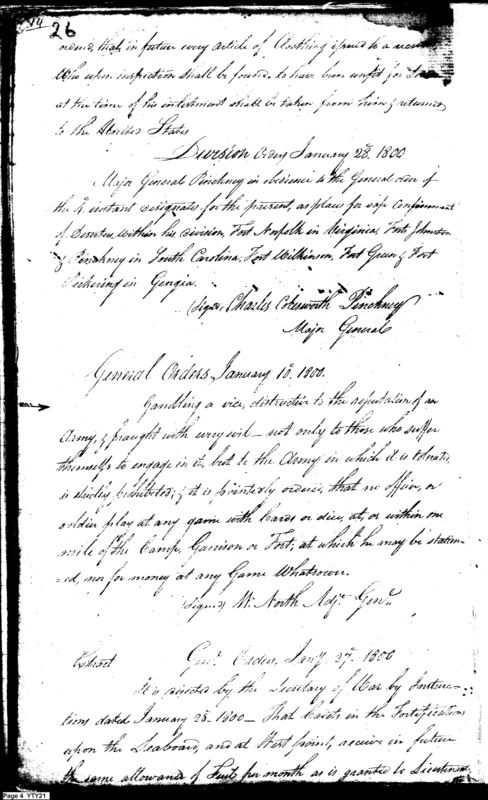 14
26
ordered, that in future every article of Cloathing issued to a recruit
Who upon inspection shall be found to have been unfit for
at the time of his inlistment shall be taken from him & returned
to the United States
Division Orders January 28. 1800
Major General Pinckney in obedience to the General order of
the 2. instant designates for the present, as places for safe Confinement
of Deserters, within his Division, Fort Norfolk in Virginia, Forts Johnston
& Pinckney in South Carolina, Fort Wilkinson, Fort Green & Fort
Pickering in Georgia.
(Signed) Charles Cotesworth Pinckney
Major General
General Orders January 10. 1800.
Gambling a vice, distructive to the reputation of an
Army, & fraught with every evil — not only to those who suffer
themselves to engage in it, but to the Army in which it is tolerated,
is strictly prohibited; & it is pointedly ordered, that no officer, or
soldier play at any game with Cards or dice, at, or within one
mile of the Camp, Garrison or Fort, at which he may be station-
=ed, nor for money at any Game Whatsoever.
(Signed) W. North Adjt. Genl.
Extract Genl. Orders, Jany. 27. 1800
It is directed by the Secretary of War by Instruc-
tions dated January 25. 1800 — That Cadets in the Fortifications
upon the Seaboard, and at West point, receive in future
the same allowance of Fuel per month as is granted to Lieutenants
Page 4 YTY21